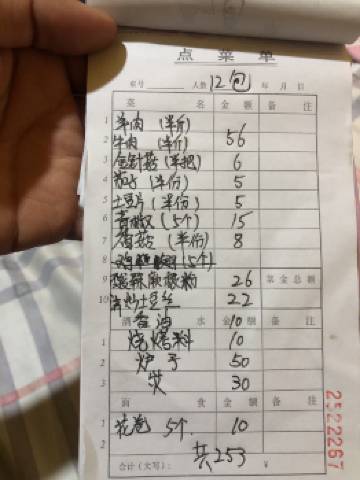 点菜单
桌号 人数 12包 年 月 日
菜 名 金额 备注
1 羊肉 (半斤)
2 牛肉 (半斤) 56
3 金针菇 (半把) 6
4 茄子 (半份) 5
5 土豆片 (半份) 5
6 青椒 (5个) 15
7 香菇 (半份) 8
8 (5个)
9 酸辣 粉 26 菜金总额
10 土豆丝 22
酒 水 金额 备注
香油 10
1 烧烤料 10
2 炉子 50
3 炭 30
面 食 金额 备注
1 花卷 5个 10
2 共253
合计(大写): ¥
2522267